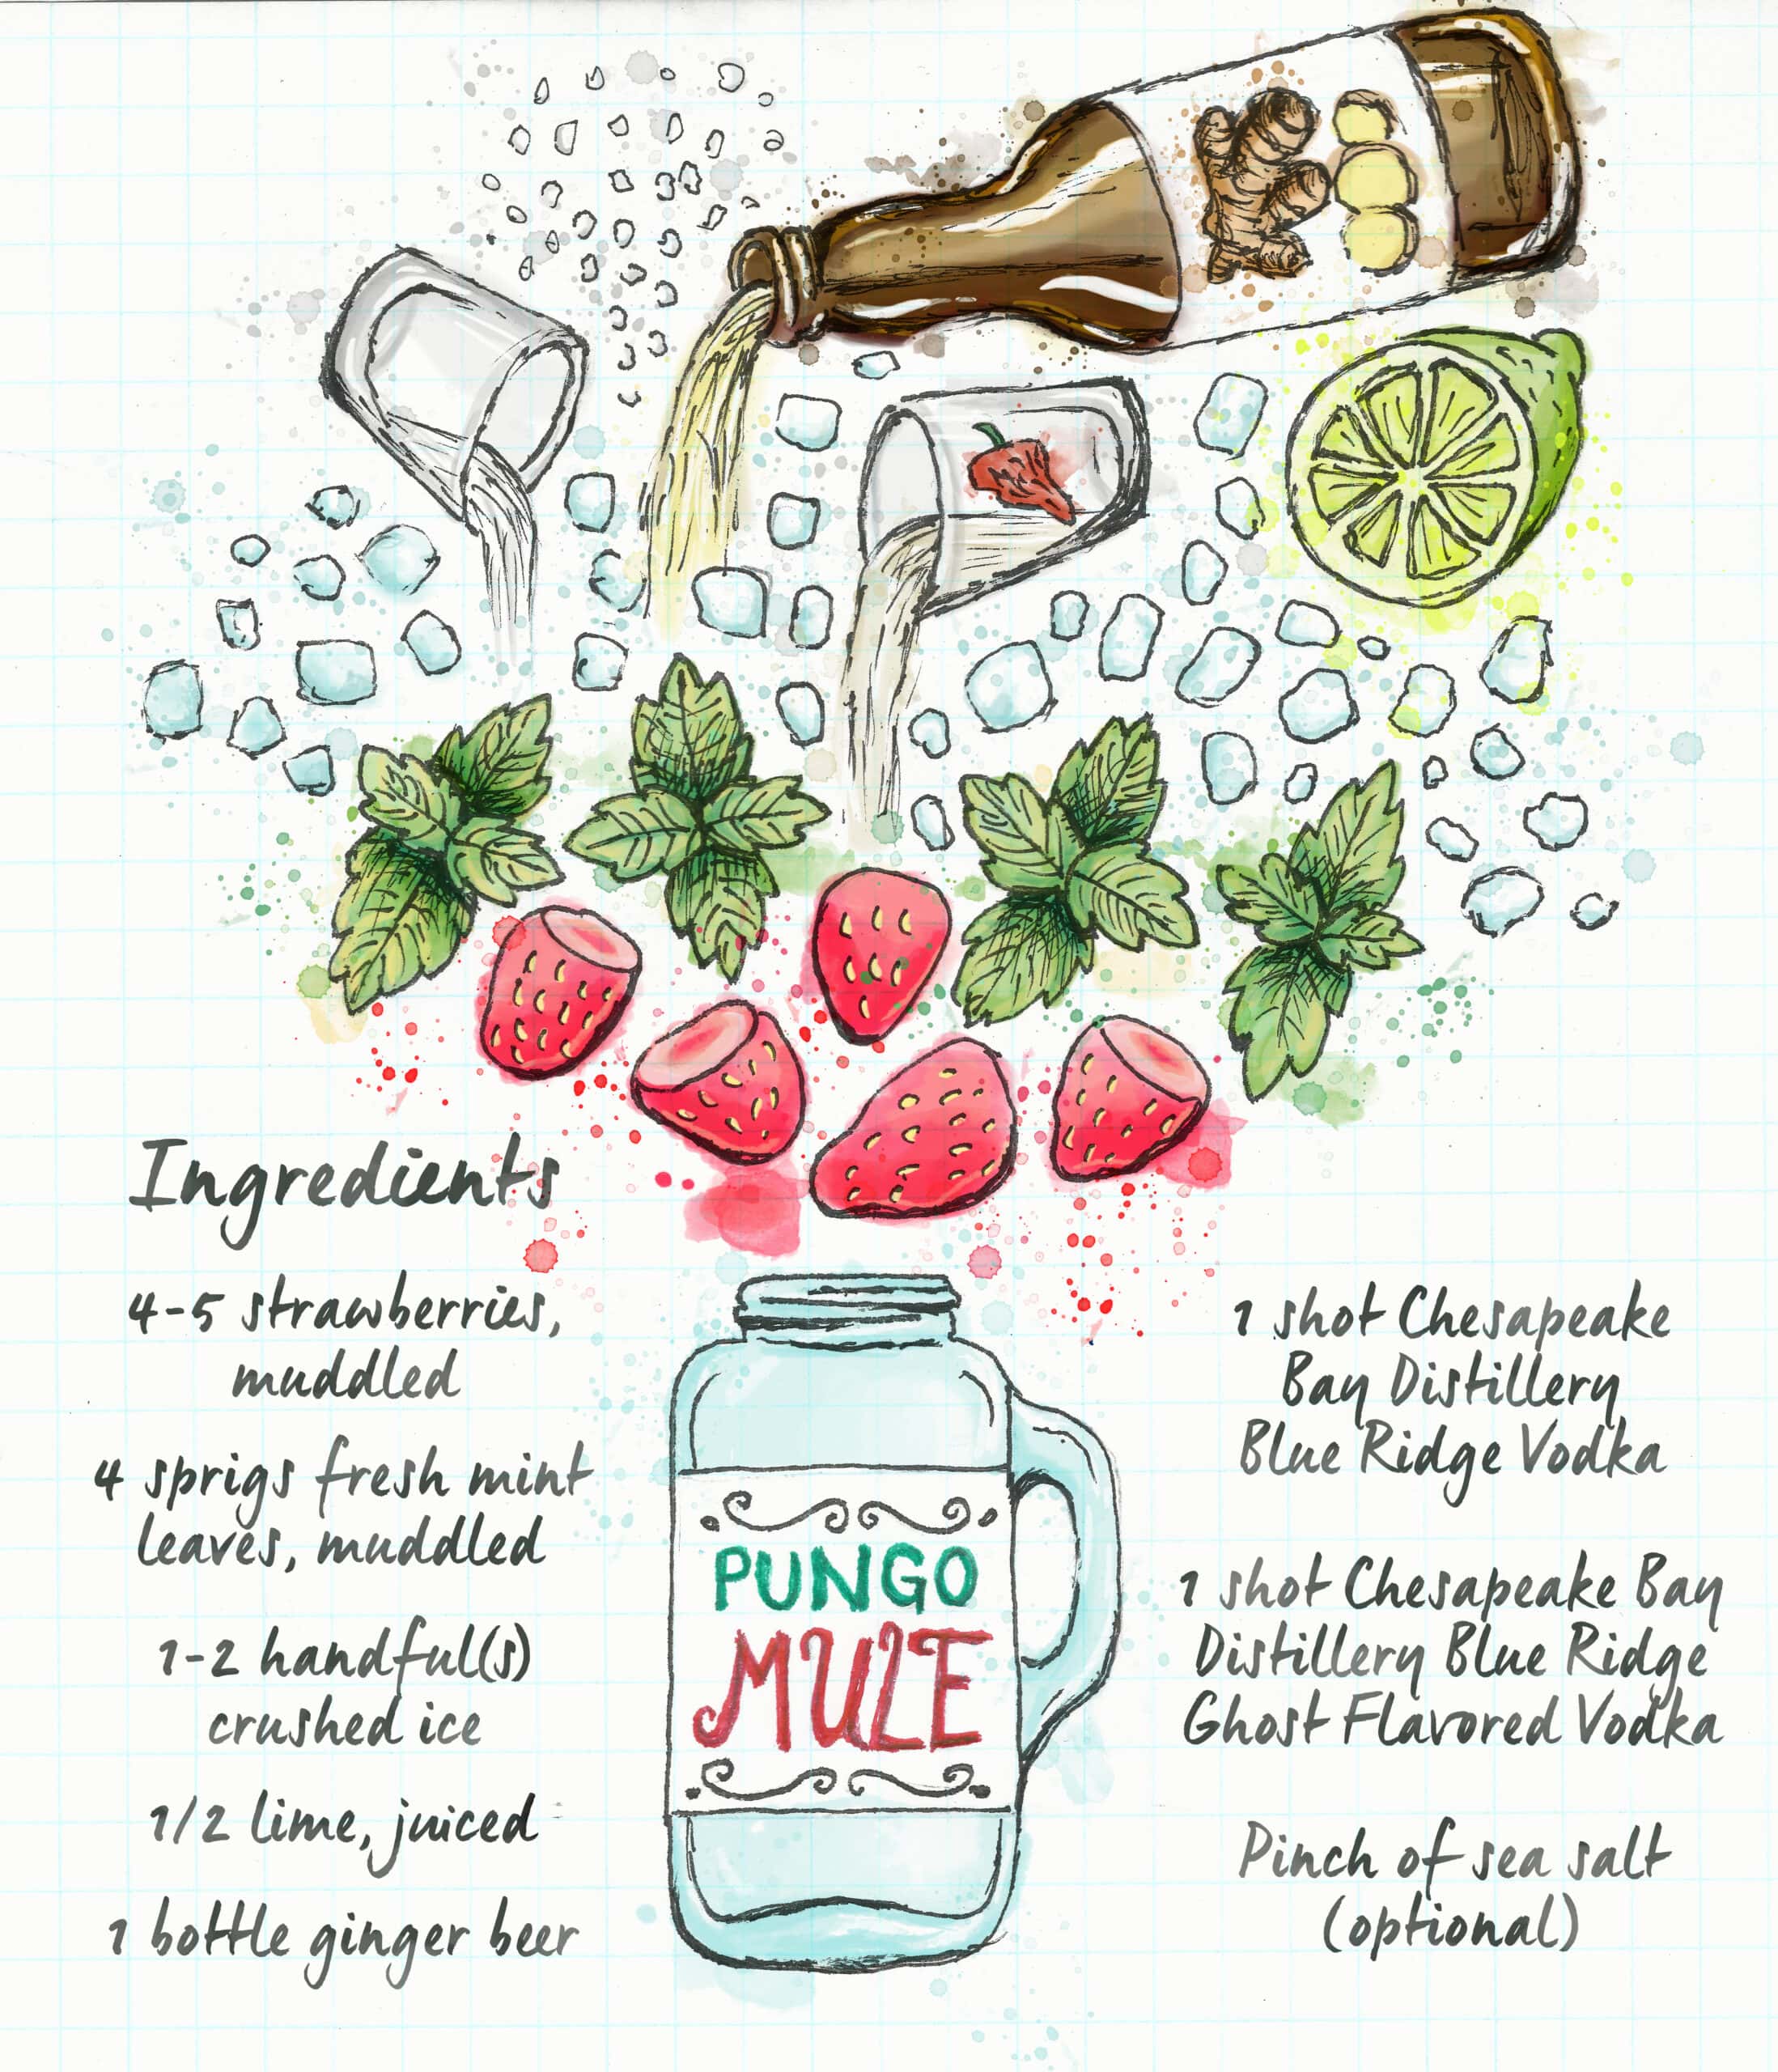 Ingredients
4-5 strawberries,
muddled
4 sprigs fresh mint
leaves, muddled
1-2 handful(s)
crushed ice
1/2 lime, juiced
1 bottle ginger beer
PUNGO
MULE
1 shot Chesapeake
Bay Distillery
Blue Ridge Vodka
1 shot Chesapeake Bay
Distillery Blue Ridge
Ghost Flavored Vodka
Pinch of sea salt
(optional)